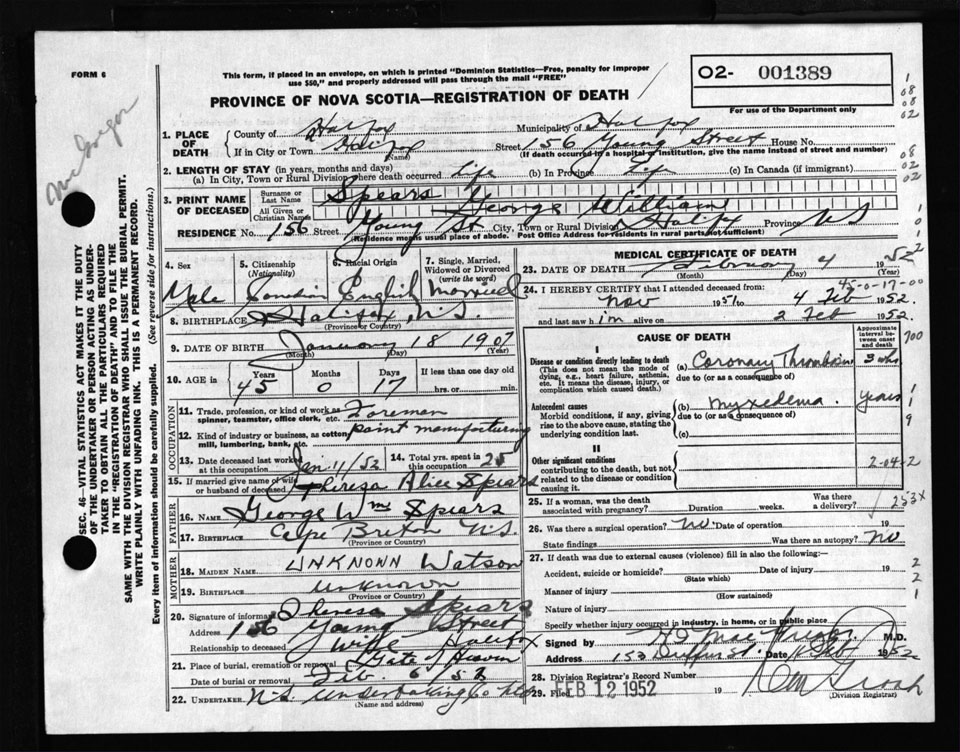 FORM 6
This form, if placed in an envelope, on which is printed "Dominion Statistics—Free, penalty for improper
use $50," and properly addressed will pass through the mail "FREE"
02- 001389
For use of the Department only
PROVINCE OF NOVA SCOTIA—REGISTRATION OF DEATH
MacGregor
1. PLACE OF DEATH
County of Halifax Municipality of Halifax
If in City or Town Halifax Street 156 Young Street House No.
(Name) (If death occurred in a hospital or institution, give the name instead of street and number)
2. LENGTH OF STAY (in years, months and days)
(a) In City, Town or Rural Division where death occurred Life (b) In Province Life (c) In Canada (if immigrant)
3. PRINT NAME OF DECEASED
Surname or Last Name Spears
All Given or Christian Names George William
RESIDENCE No. 156 Street Young St. City, Town or Rural Division Halifax Province NS
(Residence means usual place of abode. Post Office Address for residents in rural parts not sufficient)
4. Sex Male
5. Citizenship (Nationality) Canadian
6. Racial Origin English
7. Single, Married, Widowed or Divorced (write the word) Married
8. BIRTHPLACE Halifax, N.S.
(Province or Country)
9. DATE OF BIRTH January 18 1907
(Month) (Day) (Year)
10. AGE in Years 45 Months 0 Days 17 If less than one day old hrs. or min.
OCCUPATION
11. Trade, profession, or kind of work as spinner, teamster, office clerk, etc. Foreman
12. Kind of industry or business, as cotton mill, lumbering, bank, etc. paint manufacturing
13. Date deceased last worked at this occupation Jan 11/52
14. Total yrs. spent in this occupation 25
15. If married give name of wife or husband of deceased Theresa Alice Spears
FATHER
16. NAME George Wm Spears
17. BIRTHPLACE Cape Breton N.S.
(Province or Country)
MOTHER
18. MAIDEN NAME UNKNOWN Watson
19. BIRTHPLACE Unknown
(Province or Country)
20. Signature of informant Theresa Spears
Address 156 Young Street
Relationship to deceased Wife Halifax
21. Place of burial, cremation or removal Gate of Heaven
Date of burial or removal Feb. 6 52
22. UNDERTAKER N.S. Undertaking Co
(Name and address)
MEDICAL CERTIFICATE OF DEATH
23. DATE OF DEATH February 4 1952
(Month) (Day) (Year)
45-0-17-00
24. I HEREBY CERTIFY that I attended deceased from:
Nov 1951 to 4 Feb 1952.
and last saw him alive on 2 Feb 1952.
CAUSE OF DEATH
Approximate interval between onset and death
I
Disease or condition directly leading to death
(This does not mean the mode of dying, e.g., heart failure, asthenia, etc. It means the disease, injury, or complication which caused death.)
(a) Coronary Thrombosis 3 whs
due to (or as a consequence of)
Antecedent causes
Morbid conditions, if any, giving rise to the above cause, stating the underlying condition last.
(b) Myxedema. years
due to (or as a consequence of)
(c)
II
Other significant conditions
contributing to the death, but not related to the disease or condition causing it
2-04-2
25. If a woman, was the death associated with pregnancy? Duration weeks. Was there a delivery? 253X
26. Was there a surgical operation? No Date of operation 19
State findings Was there an autopsy? No
27. If death was due to external causes (violence) fill in also the following:—
Accident, suicide or homicide? Date of injury 19
(State which)
Manner of injury
(How sustained)
Nature of injury
Specify whether injury occurred in industry, in home, or in public place
Signed by M.D.
Address Date 1952
28. Division Registrar's Record Number
29. Filed FEB 12 1952 19
(Division Registrar)
SEC. 46—VITAL STATISTICS ACT MAKES IT THE DUTY
OF THE UNDERTAKER OR PERSON ACTING AS UNDER-
TAKER TO OBTAIN ALL THE PARTICULARS REQUIRED
IN THE "REGISTRATION OF DEATH" AND TO FILE THE
SAME WITH THE DIVISION REGISTRAR WHO SHALL ISSUE THE BURIAL PERMIT.
WRITE PLAINLY WITH UNFADING INK. THIS IS A PERMANENT RECORD.
Every item of information should be carefully supplied. (See reverse side for instructions.)